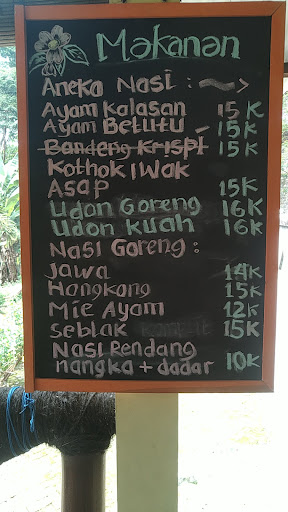 Makanan
Aneka Nasi :
Ayam Kalasan 15 K
Ayam Betutu 15 K
Bandeng Krispi 15 K
Kothok Iwak
Asap 15K
Udon Goreng 16K
Udon Kuah 16K
Nasi Goreng :
Jawa 14K
Hongkong 15K
Mie Ayam 12K
Seblak 15K
Nasi Rendang
nangka + dadar 10K